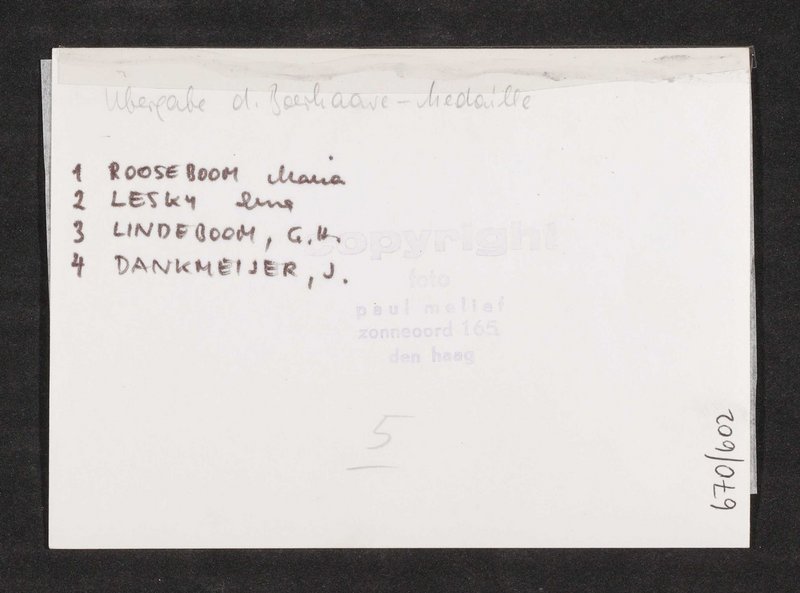 Übergabe d. Boerhaave-Medaille
1 ROOSEBOOM Maria
2 LESKY Erna
3 LINDEBOOM, G.H.
4 DANKMEIJER, J.
copyright
foto
paul mellef
zonneoord 165
den haag
5
670/602